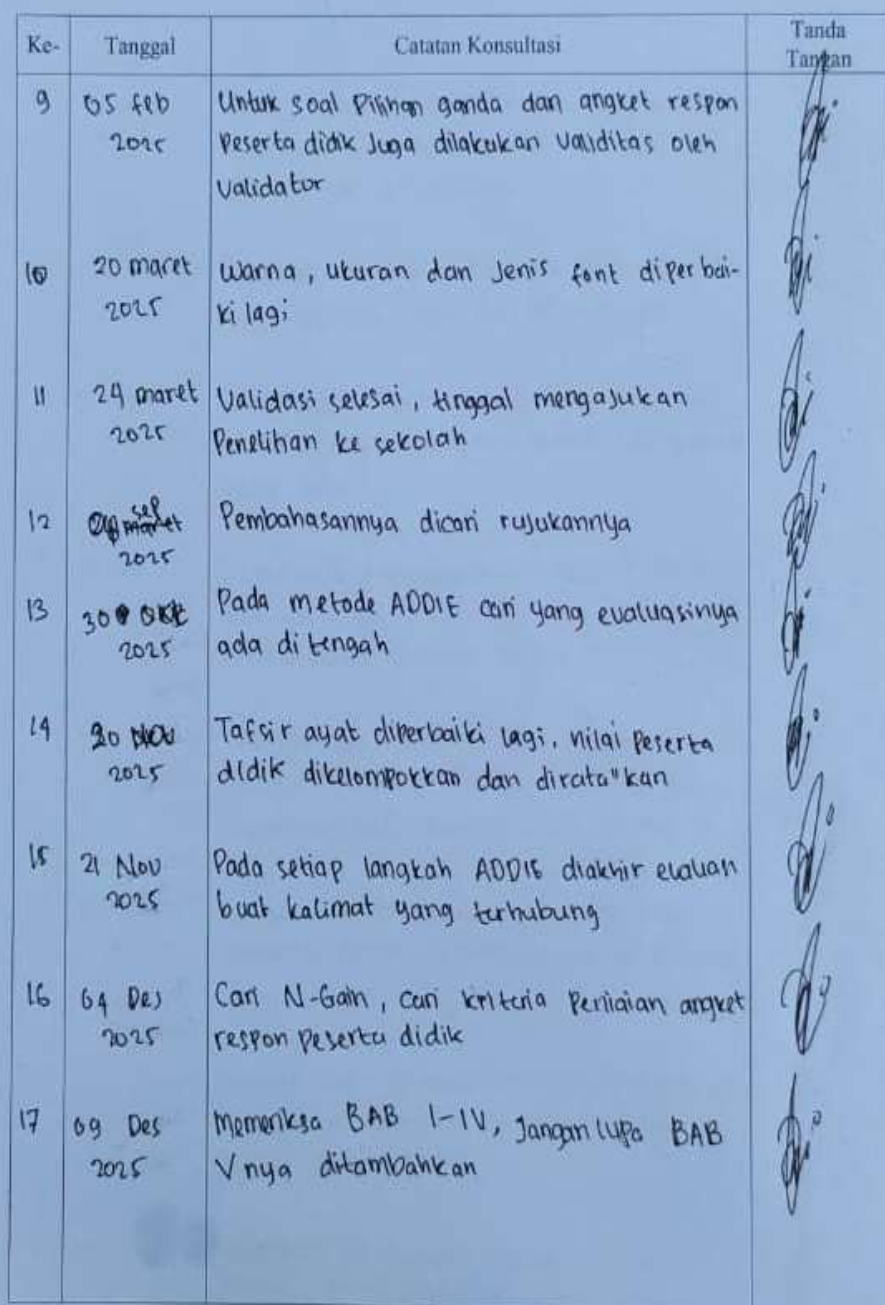 Ke- Tanggal Catatan Konsultasi Tanda
Tangan
9 05 feb Untuk soal Pilihan ganda dan angket respon
2025 Peserta didik Juga dilakukan validitas oleh
Validator
10 20 maret Warna, ukuran dan Jenis font diperbai-
2025 ki lagi
11 24 maret Validasi selesai, tinggal mengajukan
2025 Penelitian ke sekolah
12 sep Pembahasannya dicari rujukannya
2025
13 30 okt Pada metode ADDIE cari yang evaluasinya
2025 ada di tengah
14 20 Nov Tafsir ayat diperbaiki lagi, nilai Peserta
2025 didik dikelompokkan dan dirata"kan
15 21 Nov Pada setiap langkah ADDIE diakhir evaluasi
2025 buat kalimat yang terhubung
16 04 Des Cari N-Gain, cari kriteria Penilaian angket
2025 respon Peserta didik
17 09 Des Memeriksa BAB I-IV, Jangan lupa BAB
2025 V nya ditambahkan